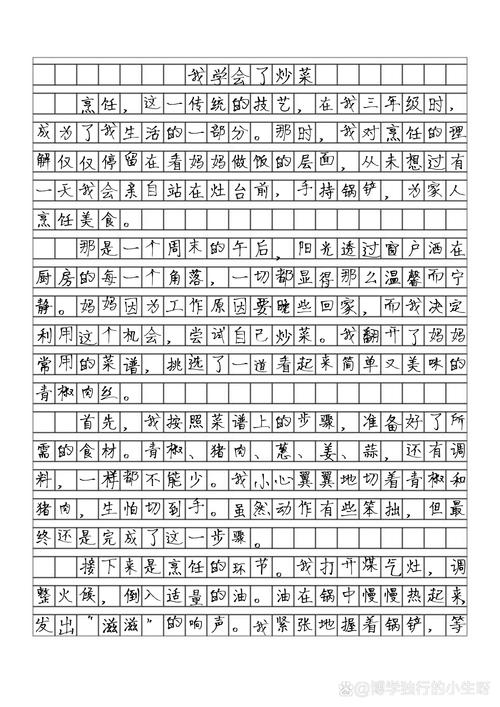 我学会了炒菜
烹饪，这一传统的技艺，在我三年级时，
成为了我生活的一部分。那时，我对烹饪的理
解仅仅停留在看妈妈做饭的层面，从未想过有
一天我会亲自站在灶台前，手持锅铲，为家人
烹饪美食。
那是一个周末的午后，阳光透过窗户洒在
厨房的每一个角落，一切都显得那么温馨而宁
静。妈妈因为工作原因要晚些回家，而我决定
利用这个机会，尝试自己炒菜。我翻开了妈妈
常用的菜谱，挑选了一道看起来简单又美味的
青椒肉丝。
首先，我按照菜谱上的步骤，准备好了所
需的食材。青椒、猪肉、葱、姜、蒜，还有调
料，一样都不能少。我小心翼翼地切着青椒和
猪肉，生怕切到手。虽然动作有些笨拙，但最
终还是完成了这一步骤。
接下来是烹饪的环节。我打开煤气灶，调
整火候，倒入适量的油。油在锅中慢慢热起来，
发出“滋滋”的响声。我紧张地握着锅铲，等
博学独行的小生呀